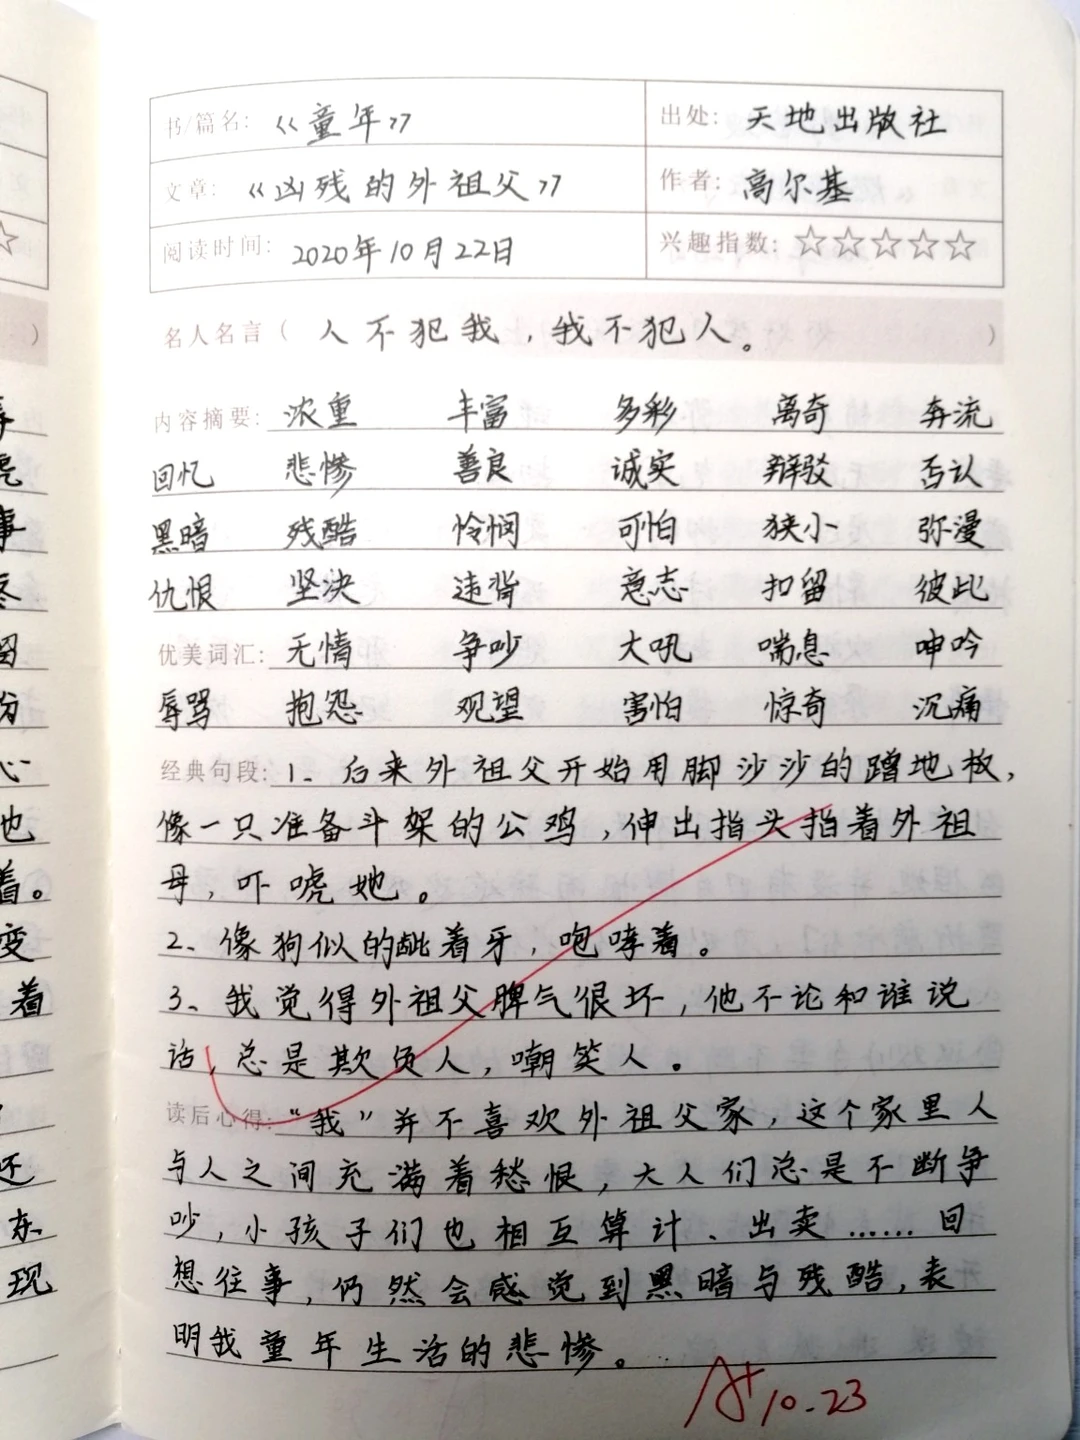 书/篇名：《童年》 出处：天地出版社
文章：《凶残的外祖父》 作者：高尔基
阅读时间：2020年10月22日 兴趣指数：☆☆☆☆☆
名人名言（人不犯我，我不犯人。）
内容摘要：浓重 丰富 多彩 离奇 奔流
回忆 悲惨 善良 诚实 辩驳 否认
黑暗 残酷 怜悯 可怕 狭小 弥漫
仇恨 坚决 违背 意志 扣留 彼此
优美词汇：无情 争吵 大吼 喘息 呻吟
辱骂 抱怨 观望 害怕 惊奇 沉痛
经典句段：1、后来外祖父开始用脚沙沙的蹭地板，
像一只准备斗架的公鸡，伸出指头指着外祖
母，吓唬她。
2、像狗似的龇着牙，咆哮着。
3、我觉得外祖父脾气很坏，他不论和谁说
话，总是欺负人，嘲笑人。
读后心得：“我”并不喜欢外祖父家，这个家里人
与人之间充满着愁恨，大人们总是不断争
吵，小孩子们也相互算计、出卖……回
想往事，仍然会感觉到黑暗与残酷，表
明我童年生活的悲惨。
A+ 10.23